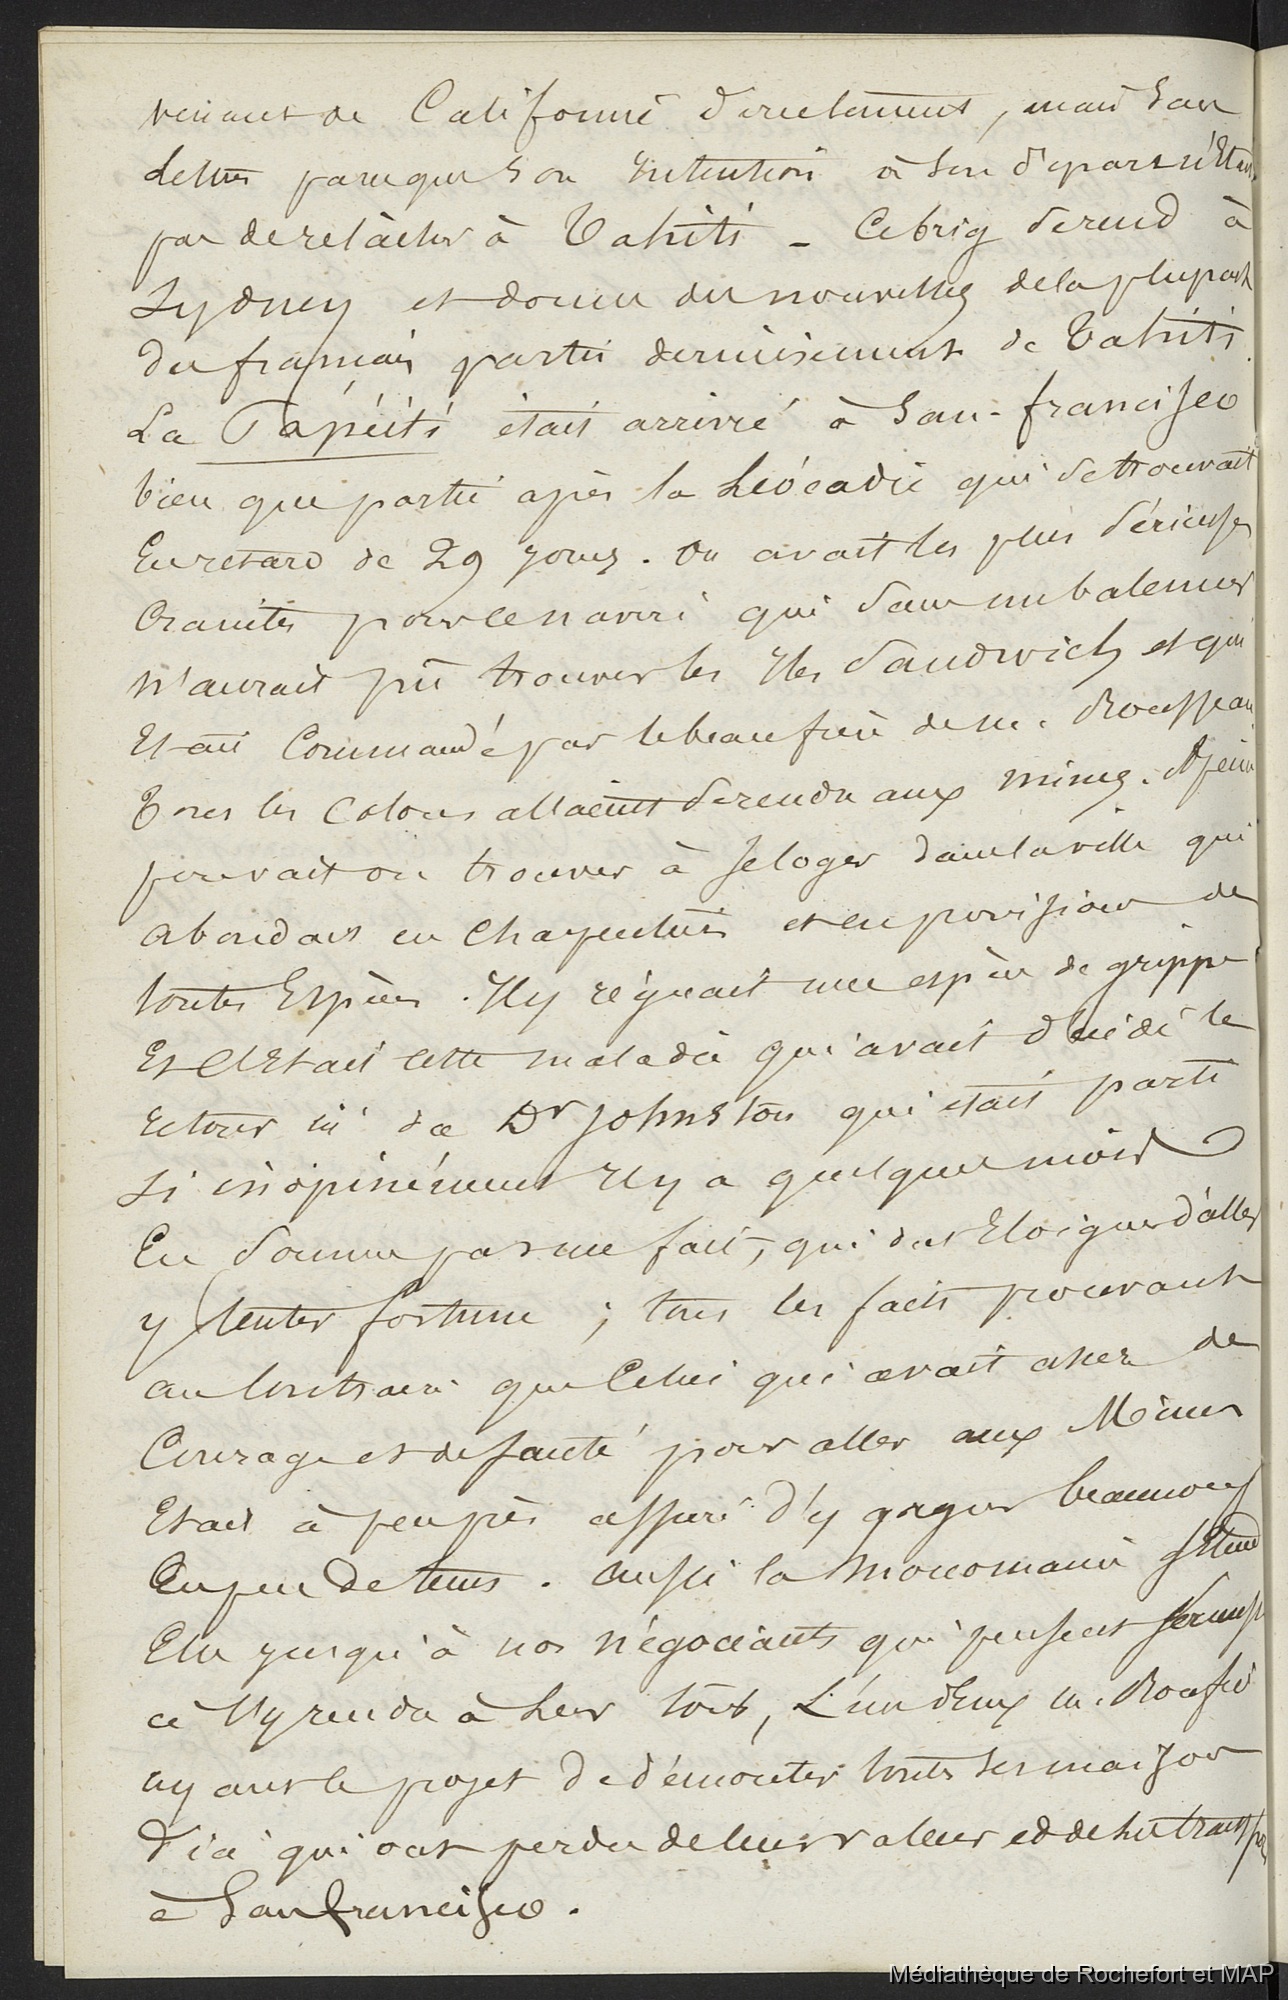 venant de Californie directement, mais sans
lettres parceque son intention à son départ n'était
pas de relâcher à Tahiti – Ce brig se rend à
Sydney et donne des nouvelles de la plupart
des français partis dernièrement de Tahiti.
La Papéiti était arrivée à San-francisco
bien que partie après la Léocadie qui se trouvait
En retard de 29 jours. On avait les plus sérieuses
Craintes pour ce navire qui sans un baleinier
n'aurait pû trouver les Iles Sandwich et qui
Etait Commandé par le beau frère de M. Rousseau.
Tous les Colons allaient se rendre aux mines. A peine
pouvait on trouver à se loger dans la ville qui
abondait en Charpentiers et en provisions de
toutes Espèces. Il y régnait une espèce de grippe
Et c'Etait cette maladie qui avait décidé le
retour ici de Dr Johnston qui était parti
si inopinément Il y a quelques mois
En somme pas un fait, qui dut Eloigner d'aller
y tenter fortune ; tous les faits prouvant
au Contraire que Celui qui avait assez de
Courage et de santé pour aller aux Mines
Etait à peu près assuré d'y gagner beaucoup
En peu de tems. Aussi la monomanie s'étend
Elle jusqu'à nos négociants qui pensent
à s'y rendre à leur tour, L'un d'Eux M.
ayant le projet de démonter toutes ses maisons
d'ici qui ont perdu de leur valeur et de les transporter
à San francisco.
Médiathèque de Rochefort et MAP